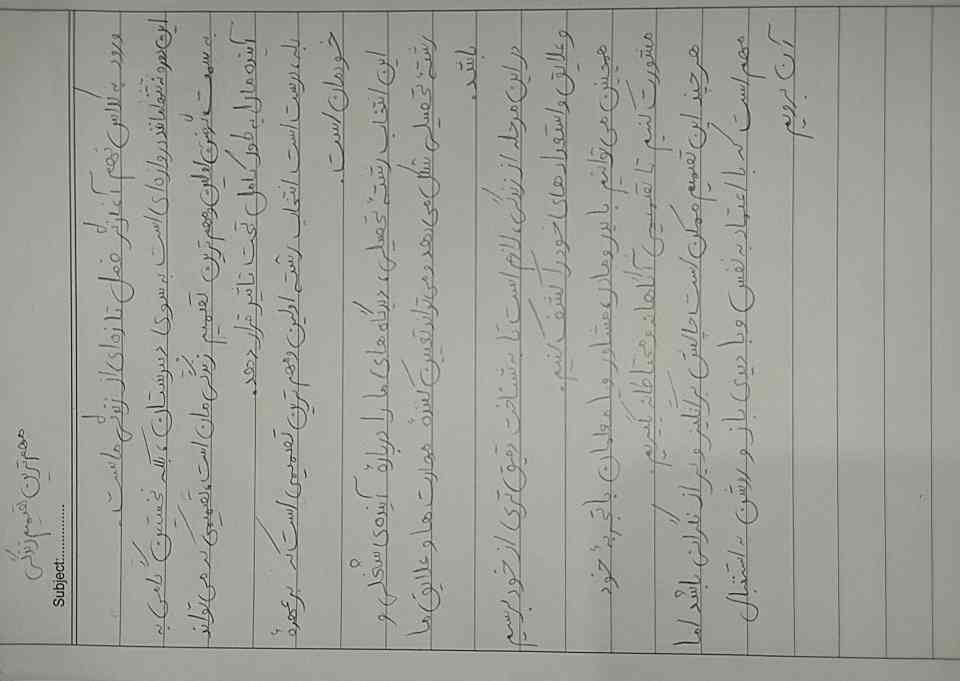 مهم ترین تصمیم زندگی
Subject:..............
ورود به کلاس نهم آغازگر فصل تازه‌ای از زندگی ماست.
این دوره نه تنها مانند دروازه‌ای است به سوی دبیرستان، بلکه نخستین گامی به
سمت گرفتن اولین و مهم ترین تصمیم زندگی مان است، تصمیمی که می تواند
آینده ما را به طور کامل تحت تاثیر قرار دهد.
بله، درست است انتخاب رشته اولین و مهم ترین تصمیمی است که بر عهدهٔ
خودمان است.
این انتخاب رشتهٔ تحصیلی، دیدگاه های ما را دربارهٔ آینده‌ی شغلی و
رشتهٔ تحصیلی شکل می دهد و می تواند تعیین کنندهٔ مهارت ها و علایق ما
باشد.
در این مرحله از زندگی، لازم است تا به شناخت دقیق تری از خود برسیم
و علایق و استعداد های خود را کشف کنیم.
همچنین می توانیم با پدر و مادر، مشاور و یا معلمان با تجربهٔ خود
مشورت کنیم تا تصمیمی آگاهانه و محتاطانه بگیریم.
هر چند این تصمیم ممکن است چالش برانگیز و پر از نگرانی باشد اما
مهم است که با اعتماد به نفس و با دیدی باز و روشن به استقبال
آن برویم